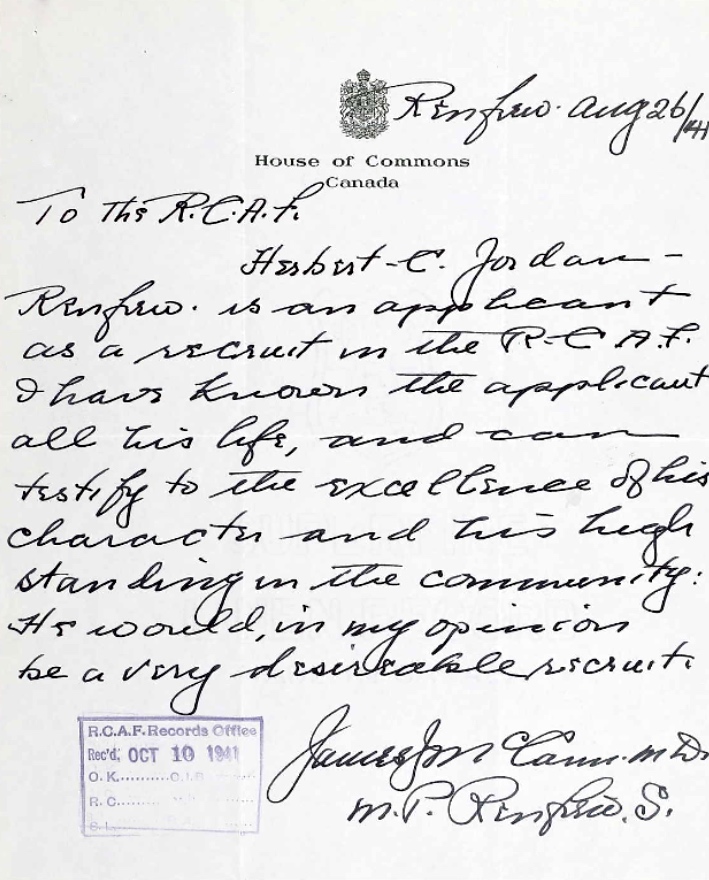 Renfrew. Aug 26/41
House of Commons
Canada
To the R.C.A.F.
Herbert-C. Jordan-
Renfrew. is an applicant
as a recruit in the R-C A.F.
I have known the applicant
all his life, and can
testify to the excellence of his
character and his high
standing in the community:
He would, in my opinion
be a very desireable recruit.
James J McCann. M D.
M.P. Renfrew. S.
R.C.A.F. Records Office
Rec'd. OCT 10 1941
O.K..........C.I.B
R.C.........